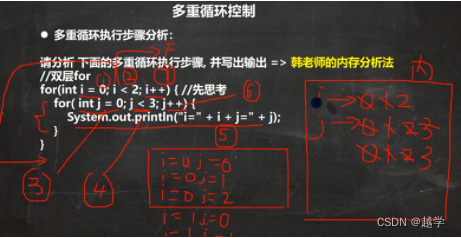 多重循环控制
● 多重循环执行步骤分析:
请分析 下面的多重循环执行步骤, 并写出输出 => 韩老师的内存分析法
//双层for
for(int i = 0; i < 2; i++) { //先思考
for( int j = 0; j < 3; j++) {
System.out.println("i=" + i + "j=" + j);
}
}
① ② F
③ ④ ⑤ ⑥
i → 0 1 2
j → 0 1 2 3
0 1 2 3
i=0 j=0
i=0 j=1
i=0 j=2
i=1 j=0
CSDN @越学